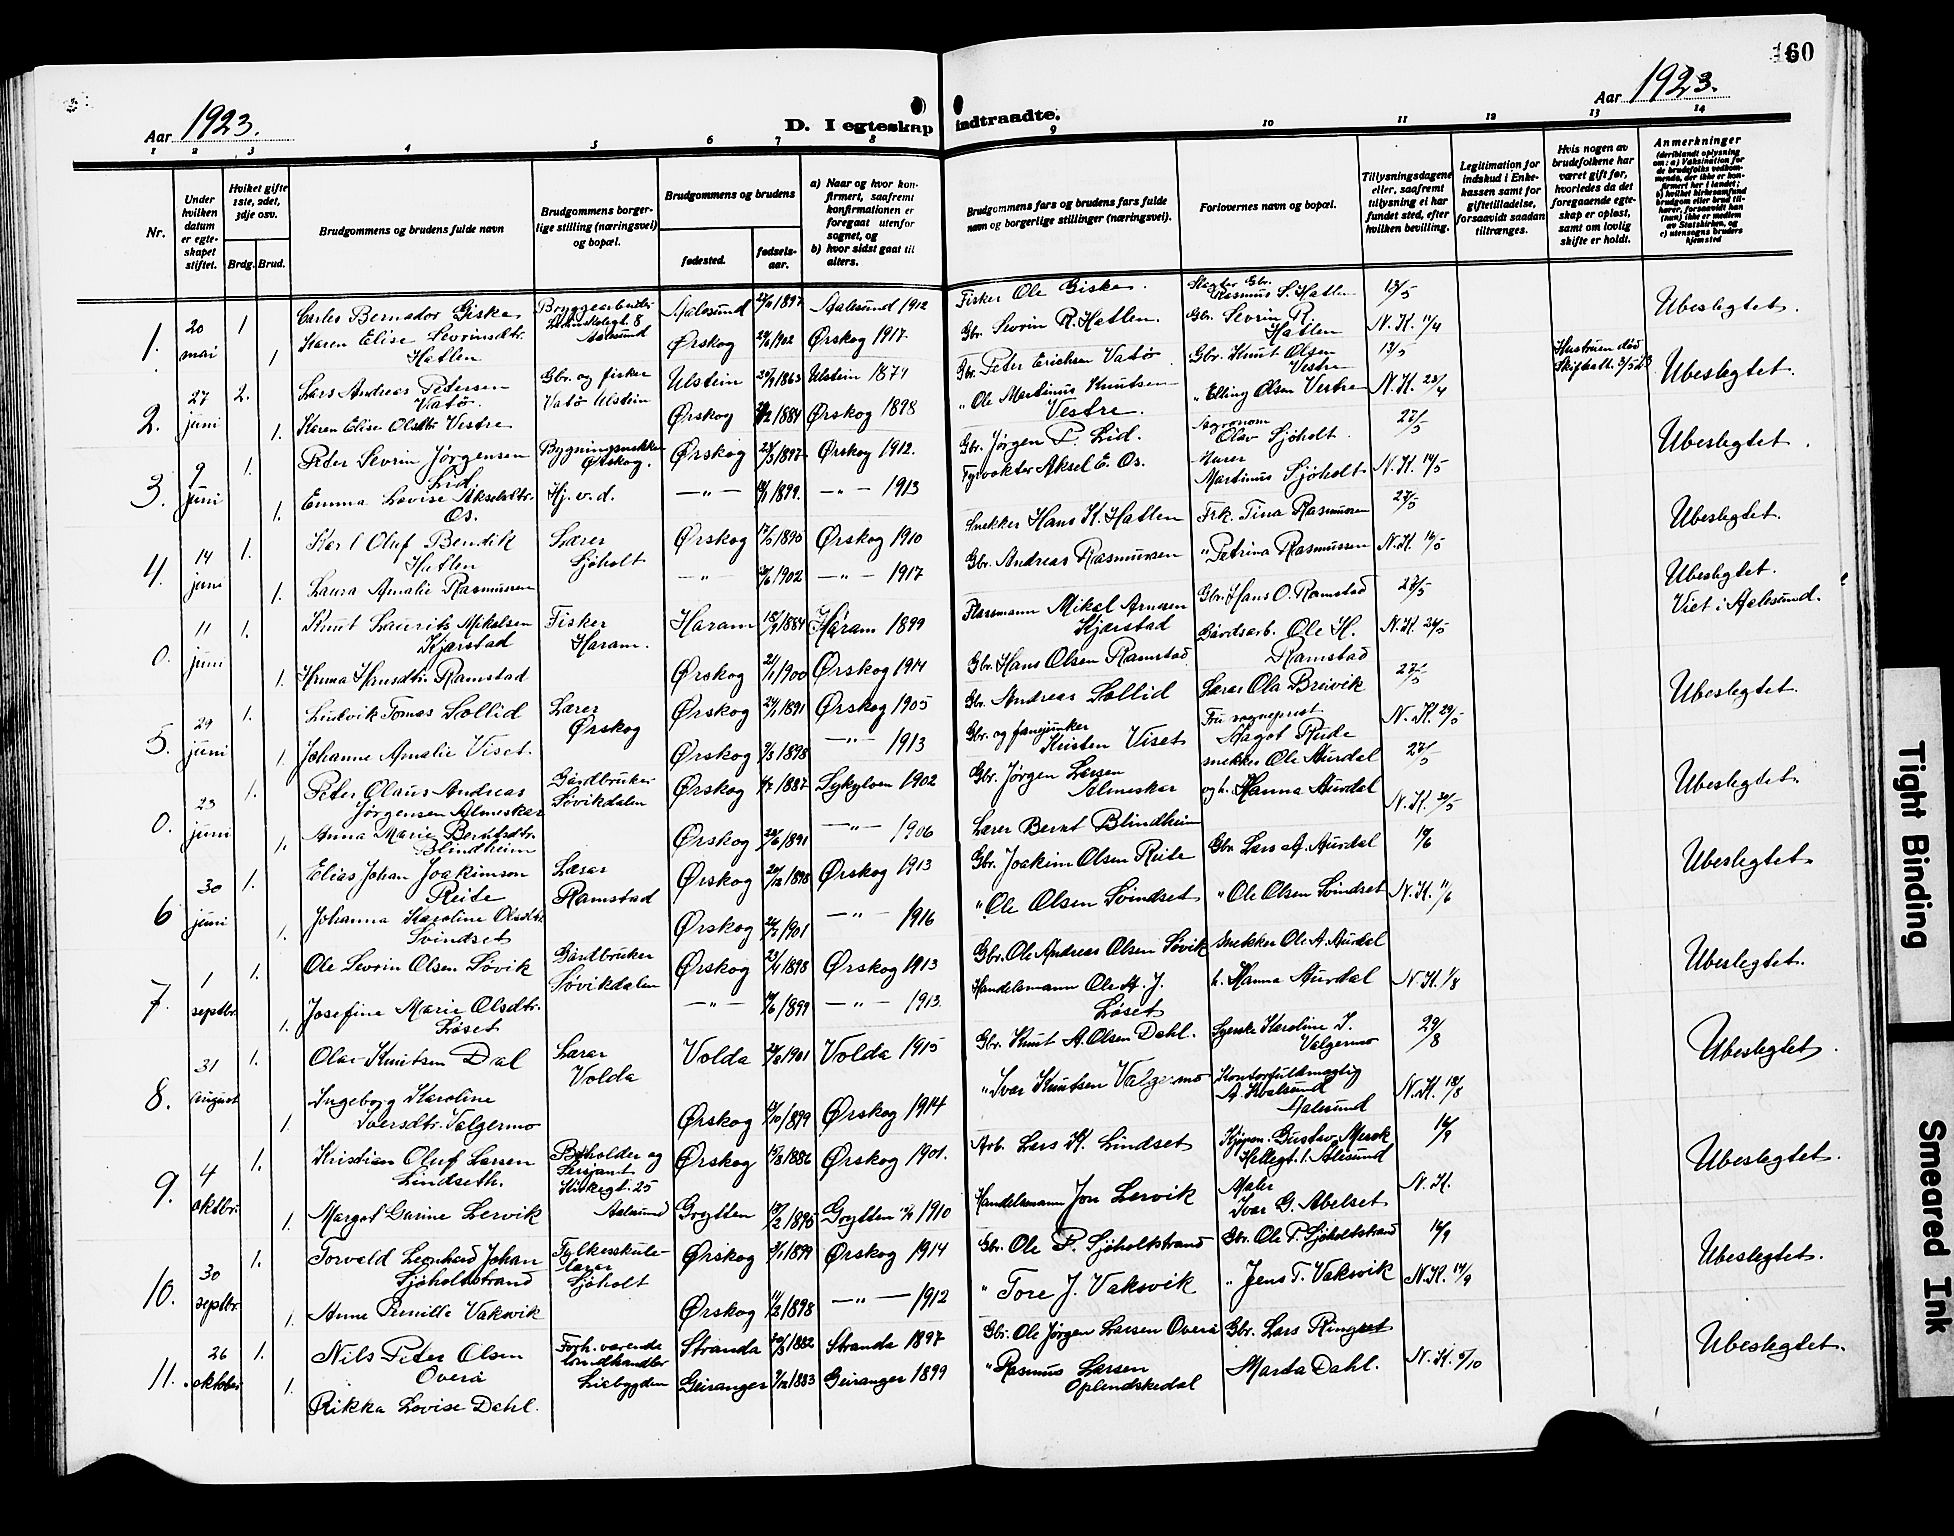 160
Aar 1923.
D. I egteskap indtraadte.
Aar 1923.
1 2 3 4 5 6 7 8 9 10 11 12 13 14
Nr.
Under hvilken datum er egteskapet stiftet.
Hvilket gifte 1ste, 2det, 3dje osv.
Brdg. Brud.
Brudgommens og brudens fulde navn
Brudgommens borgerlige stilling (næringsvei) og bopæl.
Brudgommens og brudens
fødested.
fødselsaar.
a) Naar og hvor konfirmert, saafremt konfirmationen er foregaat utenfor sognet, og
b) hvor sidst gaat til alters.
Brudgommens fars og brudens fars fulde navn og borgerlige stillinger (næringsvei).
Forlovernes navn og bopæl.
Tillysningsdagene eller, saafremt tillysning ei har fundet sted, efter hvilken bevilling.
Legitimation for indskud i Enkekassen samt for giftetilladelse, forsaavidt saadan tiltrænges.
Hvis nogen av brudefolkene har været gift før, hvorledes da det foregaaende egteskap er opløst, samt om lovlig skifte er holdt.
Anmerkninger
1. 20 mai 1 Carles Bernador Giske Bryggearbeider Aalesund 1897 Aalesund 1912 Fisker Ole Giske. Rasmus S. Hatlen 13/5 Ubeslegtet.
1 Karen Elise Sevrinsdtr. Hatlen Ørskog 1902 Ørskog 1917. Gbr. Sevrin R. Hatlen. Gbr. Sevrin R. Hatlen N. K. 11/4
2. 27 juni 2. Lars Andreas Petersen Vatø. Gbr. og fisker Vatø Ulstein Ulstein 1863 Ulstein 1874 Gbr. Peter Erichsen Vatø Gbr. Knut Olsen Vestre 13/5 Hustruen død Ubeslegtet.
1. Karen Elise Olsdtr Vestre Ørskog 1884 Ørskog 1898 " Ole Martinus Knutsen Vestre. " Elling Olsen Vestre N. K. 23/4
3. 9 juni 1. Peter Sevrin Jørgensen Lid. Bygningssnekker Ørskog. Ørskog 1897 Ørskog 1912. Gbr. Jørgen P. Lid. Agronom Olav Sjøholt 27/5 Ubeslegtet.
1. Emma Lovise Akselsdtr. Os. Hj. v. d. — " — 1899. — " — 1913 Fyrvokter Aksel E. Os. Murer Martinus Sjøholt N. K. 14/5
4. 14 juni 1. Karl Oluf Bendik Hatlen Lærer Sjøholt Ørskog 1895 Ørskog 1910 Snekker Hans K. Hatlen Frk. Tina Rasmussen 27/5 Ubeslegtet.
1. Laura Amalie Rasmussen — " — 1902 — " — 1917 Gbr. Andreas Rasmussen " Petrina Rasmussen N. K.
0. 11 juni 1. Knut Laurits Mikalsen Kjærstad Fisker Haram. Haram 1884 Haram 1899 Mikal Arnesen Kjærstad Gbr. Hans O. Ramstad 27/5 Ubeslegtet. Viet i Aalesund.
1. Hansdtr. Ramstad Ørskog 1900 Ørskog 1914 Gbr. Hans Olsen Ramstad Gårdsarb. Ole H. Ramstad N. K. 26/5
5. 29 juni 1. Ludvik Tomas Sollid Lærer Ørskog Ørskog 1891 Ørskog 1905 Gbr. Andreas Sollid Lærer Ola Breivik 27/5 Ubeslegtet.
1. Johanne Amalie Viset. Ørskog 1898 — " — 1913 Gbr. og fanejunker Kristen Viset Fru sogneprest Aagot Rude N. K. 29/5
0. 23 juni 1. Peter Olaus Andreas Jørgensen Almeskar Gårdbruker Søvikdalen Ørskog 1887 Sykylven 1902 Gbr. Jørgen Larsen Almeskar snekker Ole Aurdal og h. Hanna Aurdal 27/5 Ubeslegtet.
1. Anna Marie Berntsdtr. Blindheim Ørskog 1891 — " — 1906 Lærer Bernt Blindheim N. K. 30/5
6 30 juni 1. Elias Johan Joakimson Reite Lærer Ramstad Ørskog 1898 Ørskog 1913 Gbr. Joakim Olsen Reite Gbr. Lars A. Aurdal Ubeslegtet.
1. Johanna Karoline Olsdtr. Svindset Ørskog 1901 — " — 1916 " Ole Olsen Svindset " Ole Olsen Svindset N. K. 11/6
7. 1 septbr. 1. Ole Sevrin Olsen Søvik Gårdbruker Søvikdalen Ørskog 1898 Ørskog 1913 Gbr. Ole Andreas Olsen Søvik Snekker Ole A. Aurdal Ubeslegtet.
1. Josefine Marie Olsdtr. Løset — " — 1899 — " — 1913. Handelsmann Ole A. J. Løset h. Hanna Aurdal N. K. 1/8
8. 31 august 1. Olav Knutsen Dal Lærer Volda Volda 1901 Volda 1915 Gbr. Knut A. Olsen Dahl. Karoline I. Valgermo 29/8 Ubeslegtet.
1. Ingeborg Karoline Iversdtr. Valgermo Ørskog 1899 Ørskog 1914 " Ivar Knutsen Valgermo Kontorfuldmægtig Aalesund N. K. 18/8
9. 4 oktbr. 1. Kristian Oluf Larsen Lindseth. Bokholder og Sersjant Kirkegt. 25 Aalesund Ørskog 1886 Ørskog 1901. Arb. Lars K. Lindset Gustav Mørk Aalesund 16/9 Ubeslegtet.
1. Margot Darine Lervik Grytten 1895 Grytten 1910 Handelsmann Jon Lervik Maler Ivar G. Abelset N. K.
10. 30 septbr. 1. Torvald Leonhard Johan Sjøholtstrand Fylkesskulelærer Sjøholt Ørskog 1899 Ørskog 1914 Gbr. Ole P. Sjøholtstrand Gbr. Ole P. Sjøholtstrand 16/9 Ubeslegtet.
1. Anne Pernille Vaksvik Ørskog 1898 — " — 1912 " Tore J. Vaksvik " Jens T. Vaksvik N. K. 14/9
11. 26 oktober 1. Nils Peter Olsen Overå Forh. værende landhandler Liabygden Stranda 1882 Stranda 1897 Gbr. Ole Jørgen Larsen Overå Gbr. Lars Ringset Ubeslegtet.
1. Rikka Lovise Dahl. Geiranger 1883 Geiranger 1899 " Rasmus Larsen Oplendskedal Marta Dahl. N. K. 6/10
Tight Binding
Smeared Ink